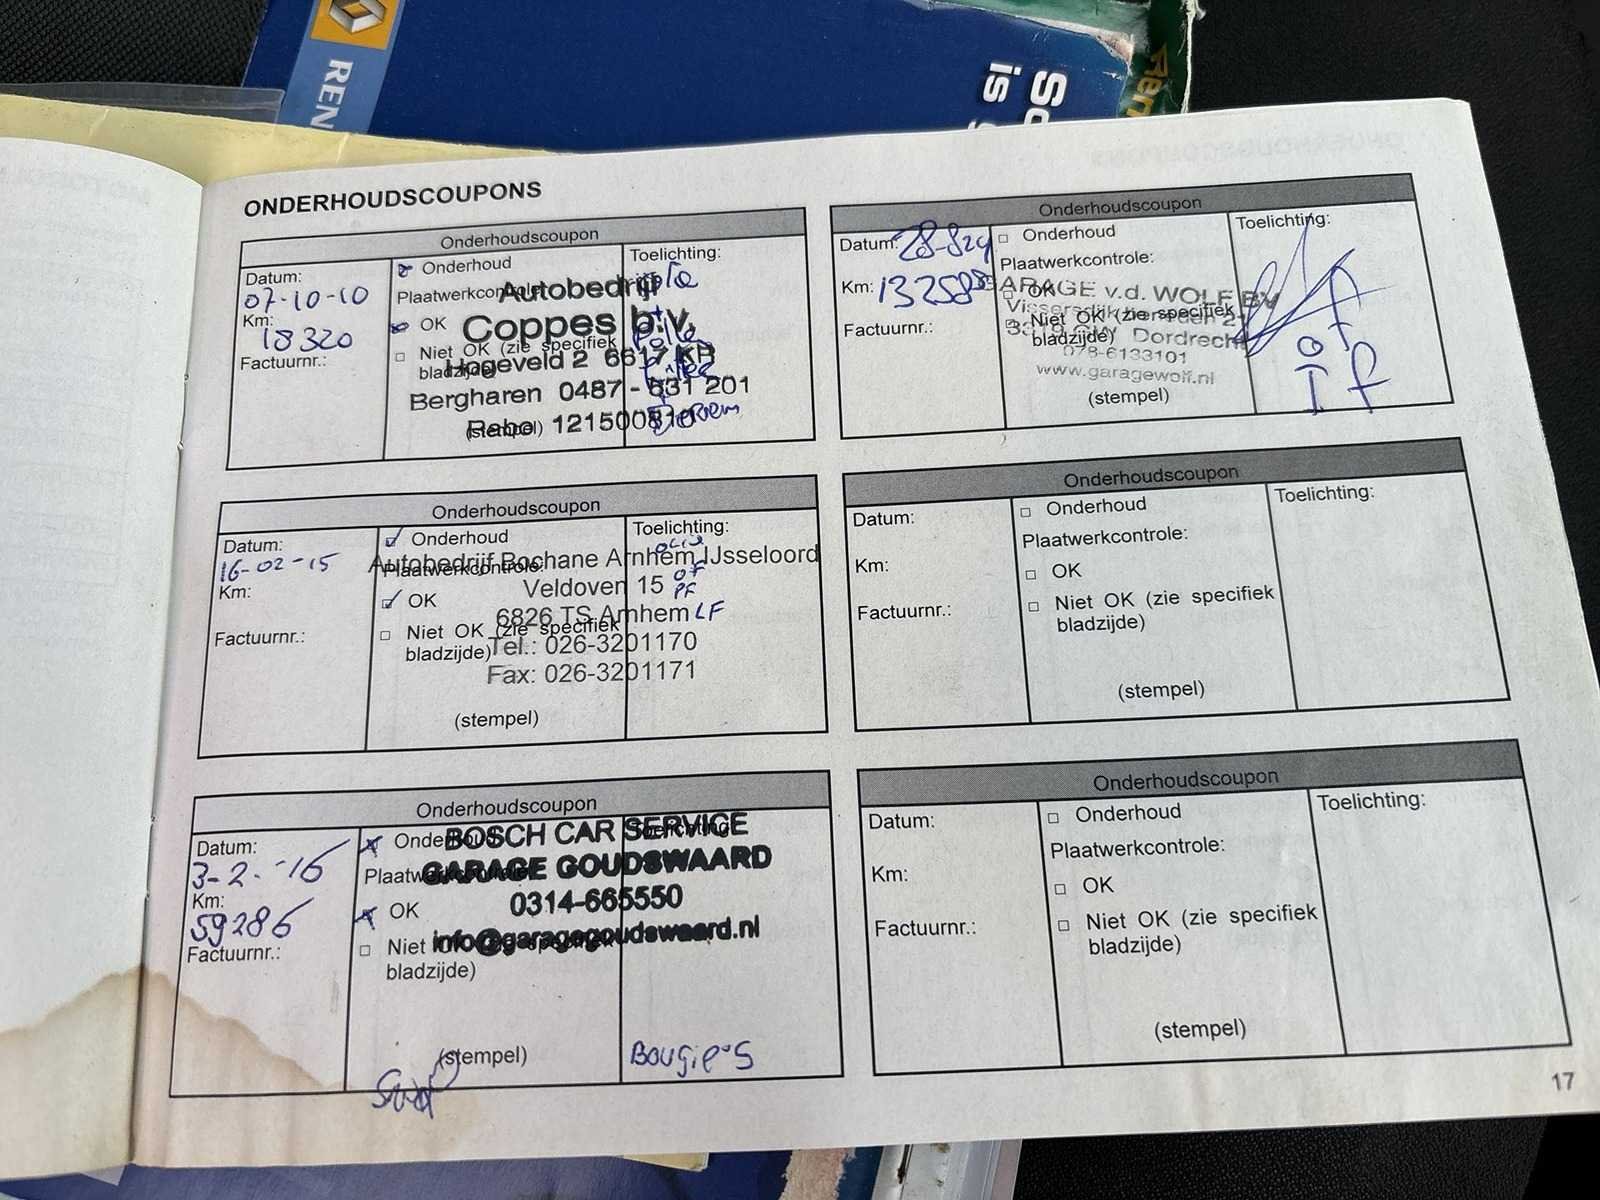 RENAULT
So
is
ONDERHOUDSCOUPONS
Onderhoudscoupon
Datum:
07-10-10
Km:
18320
Factuurnr.:
Onderhoud
Plaatwerkcontrole:
OK
Niet OK (zie specifiek
bladzijde)
(stempel)
Toelichting:
olie
Autobedrijf
Coppes b.v.
Hogeveld 2 6617 KR
Bergharen 0487 - 531 201
Rabo 121500810
Onderhoudscoupon
Datum:
16-02-15
Km:
Factuurnr.:
Onderhoud
Plaatwerkcontrole:
OK
Niet OK (zie specifiek
bladzijde)
(stempel)
Toelichting:
olie
OF
PF
LF
Autobedrijf Bochane Arnhem IJsseloord
Veldoven 15
6826 TS Arnhem
Tel.: 026-3201170
Fax: 026-3201171
Onderhoudscoupon
Datum:
3-2-'16
Km:
59286
Factuurnr.:
Onderhoud
Plaatwerkcontrole:
OK
Niet OK (zie specifiek
bladzijde)
(stempel)
Toelichting:
Bougie's
BOSCH CAR SERVICE
GARAGE GOUDSWAARD
0314-665550
info@garagegoudswaard.nl
Onderhoudscoupon
Datum:
28-8 24
Km:
Factuurnr.:
Onderhoud
Plaatwerkcontrole:
OK
Niet OK (zie specifiek
bladzijde)
(stempel)
Toelichting:
GARAGE v.d. WOLF BV
Dordrecht
078-6133101
www.garagewolf.nl
Onderhoudscoupon
Datum:
Km:
Factuurnr.:
Onderhoud
Plaatwerkcontrole:
OK
Niet OK (zie specifiek
bladzijde)
(stempel)
Toelichting:
Onderhoudscoupon
Datum:
Km:
Factuurnr.:
Onderhoud
Plaatwerkcontrole:
OK
Niet OK (zie specifiek
bladzijde)
(stempel)
Toelichting:
17